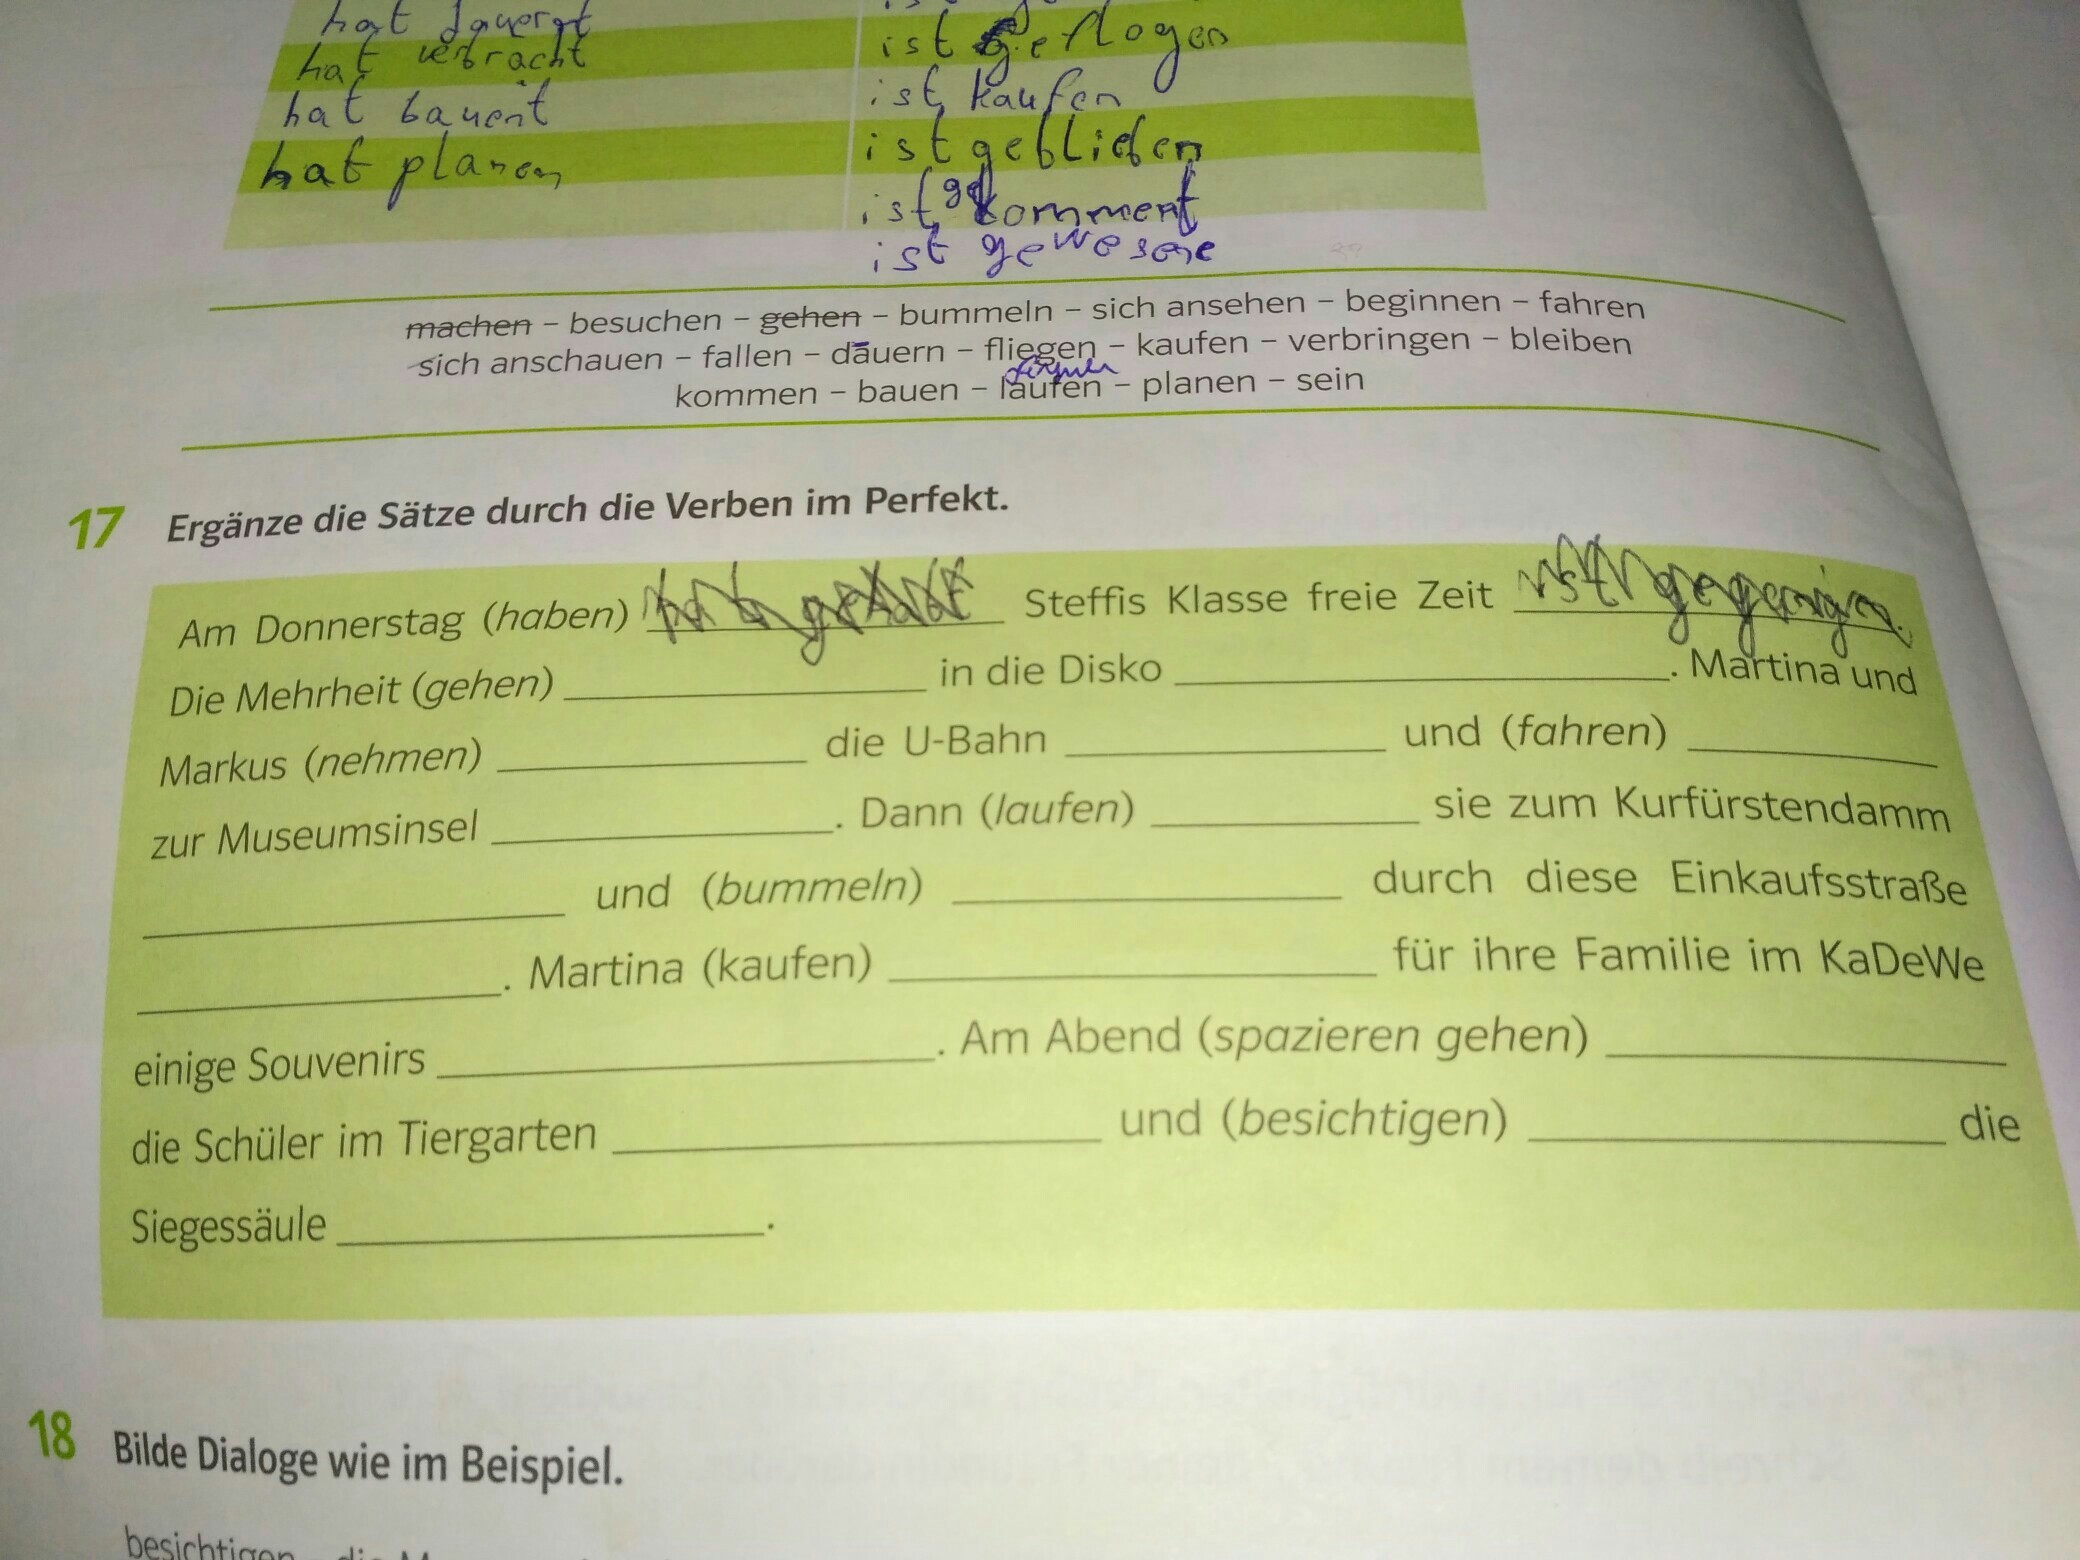 hat dauergt
ist geflogen
hat verbracht
ist kaufen
hat bauent
ist geblieben
hat planen
ist gekomment
ist gewesene
machen – besuchen – gehen – bummeln – sich ansehen – beginnen – fahren
sich anschauen – fallen – dauern – fliegen – kaufen – verbringen – bleiben
kommen – bauen – laufen – planen – sein
17 Ergänze die Sätze durch die Verben im Perfekt.
Am Donnerstag (haben) ____ Steffis Klasse freie Zeit ____
Die Mehrheit (gehen) ____ in die Disko ____. Martina und
Markus (nehmen) ____ die U-Bahn ____ und (fahren) ____
zur Museumsinsel ____. Dann (laufen) ____ sie zum Kurfürstendamm
____ und (bummeln) ____ durch diese Einkaufsstraße
____. Martina (kaufen) ____ für ihre Familie im KaDeWe
einige Souvenirs ____. Am Abend (spazieren gehen) ____
die Schüler im Tiergarten ____ und (besichtigen) ____ die
Siegessäule ____.
18 Bilde Dialoge wie im Beispiel.
besichtigen